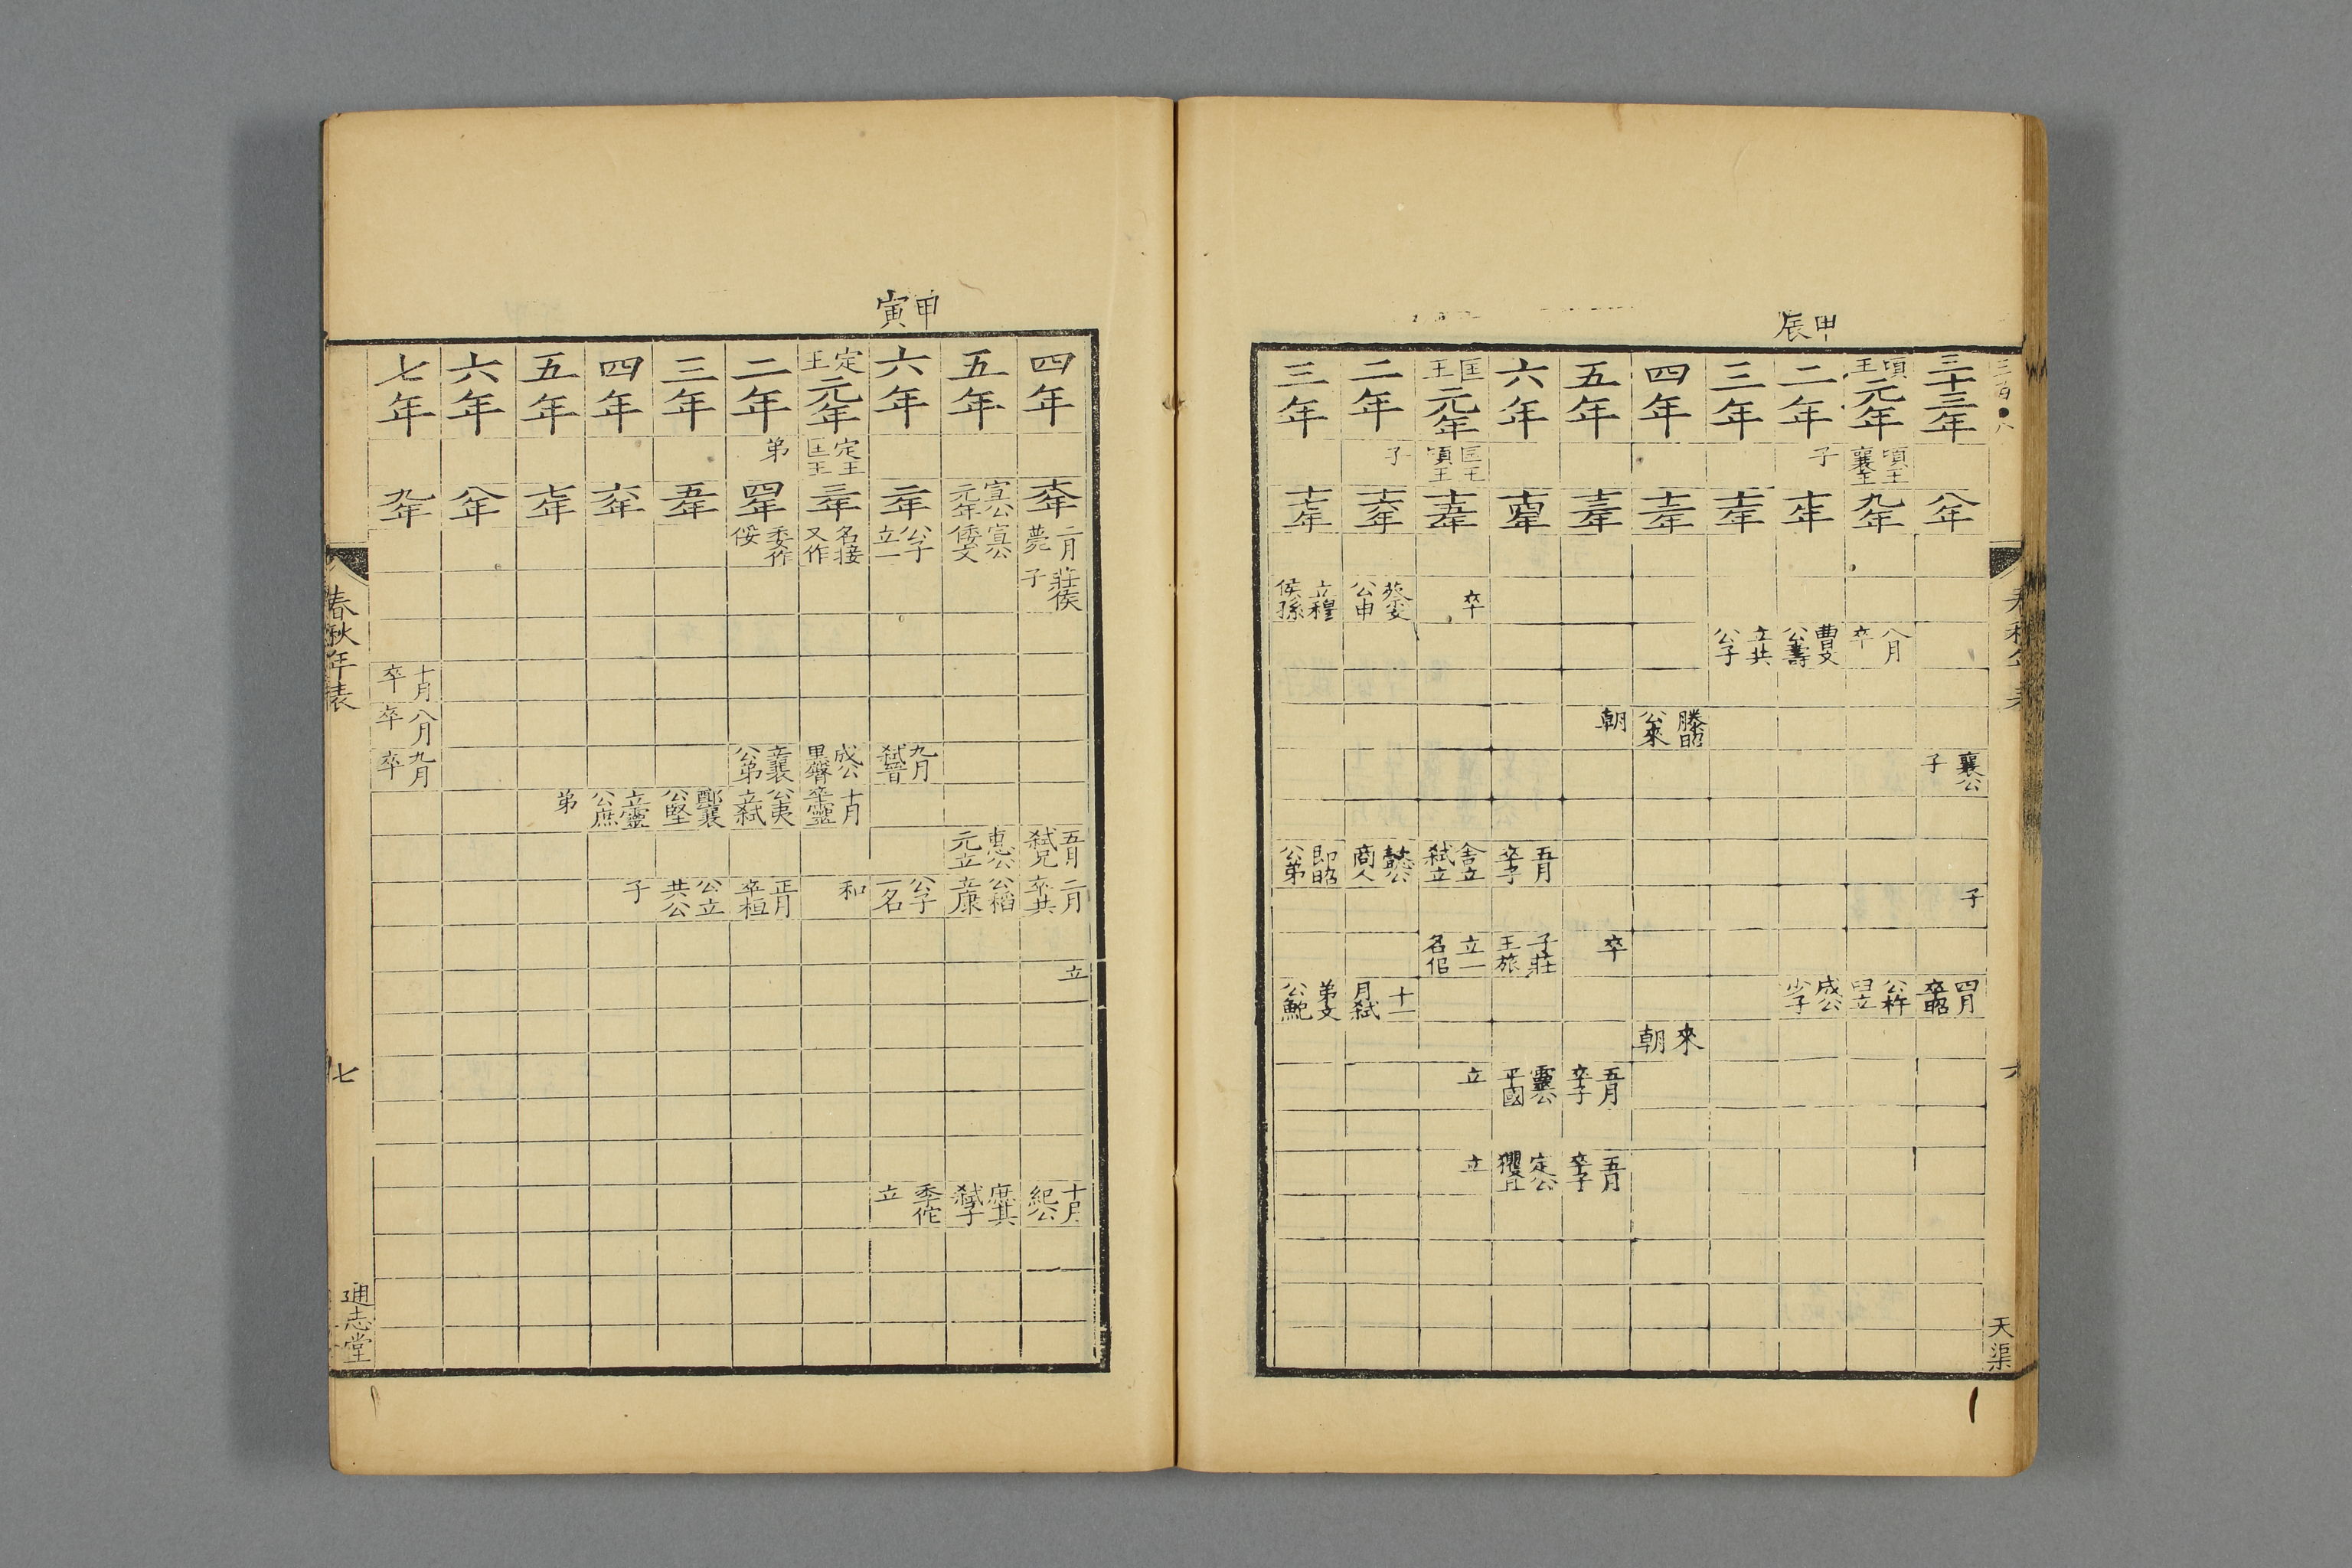 甲辰
三百八
天渠
三十三年 八年 襄公子 子 四月卒昭
頃王元年 頃王襄王 九年 八月卒 公杵臼立
二年 子 十年 曹文公壽 成公少子
三年 十一年 立共公子
四年 十二年 滕昭公來 來朝
五年 十三年 朝 卒 五月卒子 五月卒子
六年 十四年 五月卒子 子莊王旅 靈公平國 定公貜且
匡王元年 匡王頃王 十五年 卒 舍立弒立 立一名侶 立 立
二年 子 十六年 蔡文公申 懿公商人 十一月弒
三年 十七年 立穆侯孫 即昭公弟 弟文公鮑
甲寅
四年 十八年 二月薨 莊侯子 五月弒兄 二月卒共 立 十月紀公
五年 宣公元年 宣公倭文 惠公元立 公稻立康 庶其弒子
六年 二年 公子立一 九月弒晉 公子一名 季佗立
定王元年 定王匡王 三年 名接又作 成公黑臀 十月卒靈 和
二年 弟 四年 委作俀 立襄公弟 公夷立弒 正月卒桓
三年 五年 鄭襄公堅 公立共公
四年 六年 立靈公庶 子
五年 七年 弟
六年 八年
七年 九年 十月卒 八月卒 九月卒
春秋年表 七 通志堂